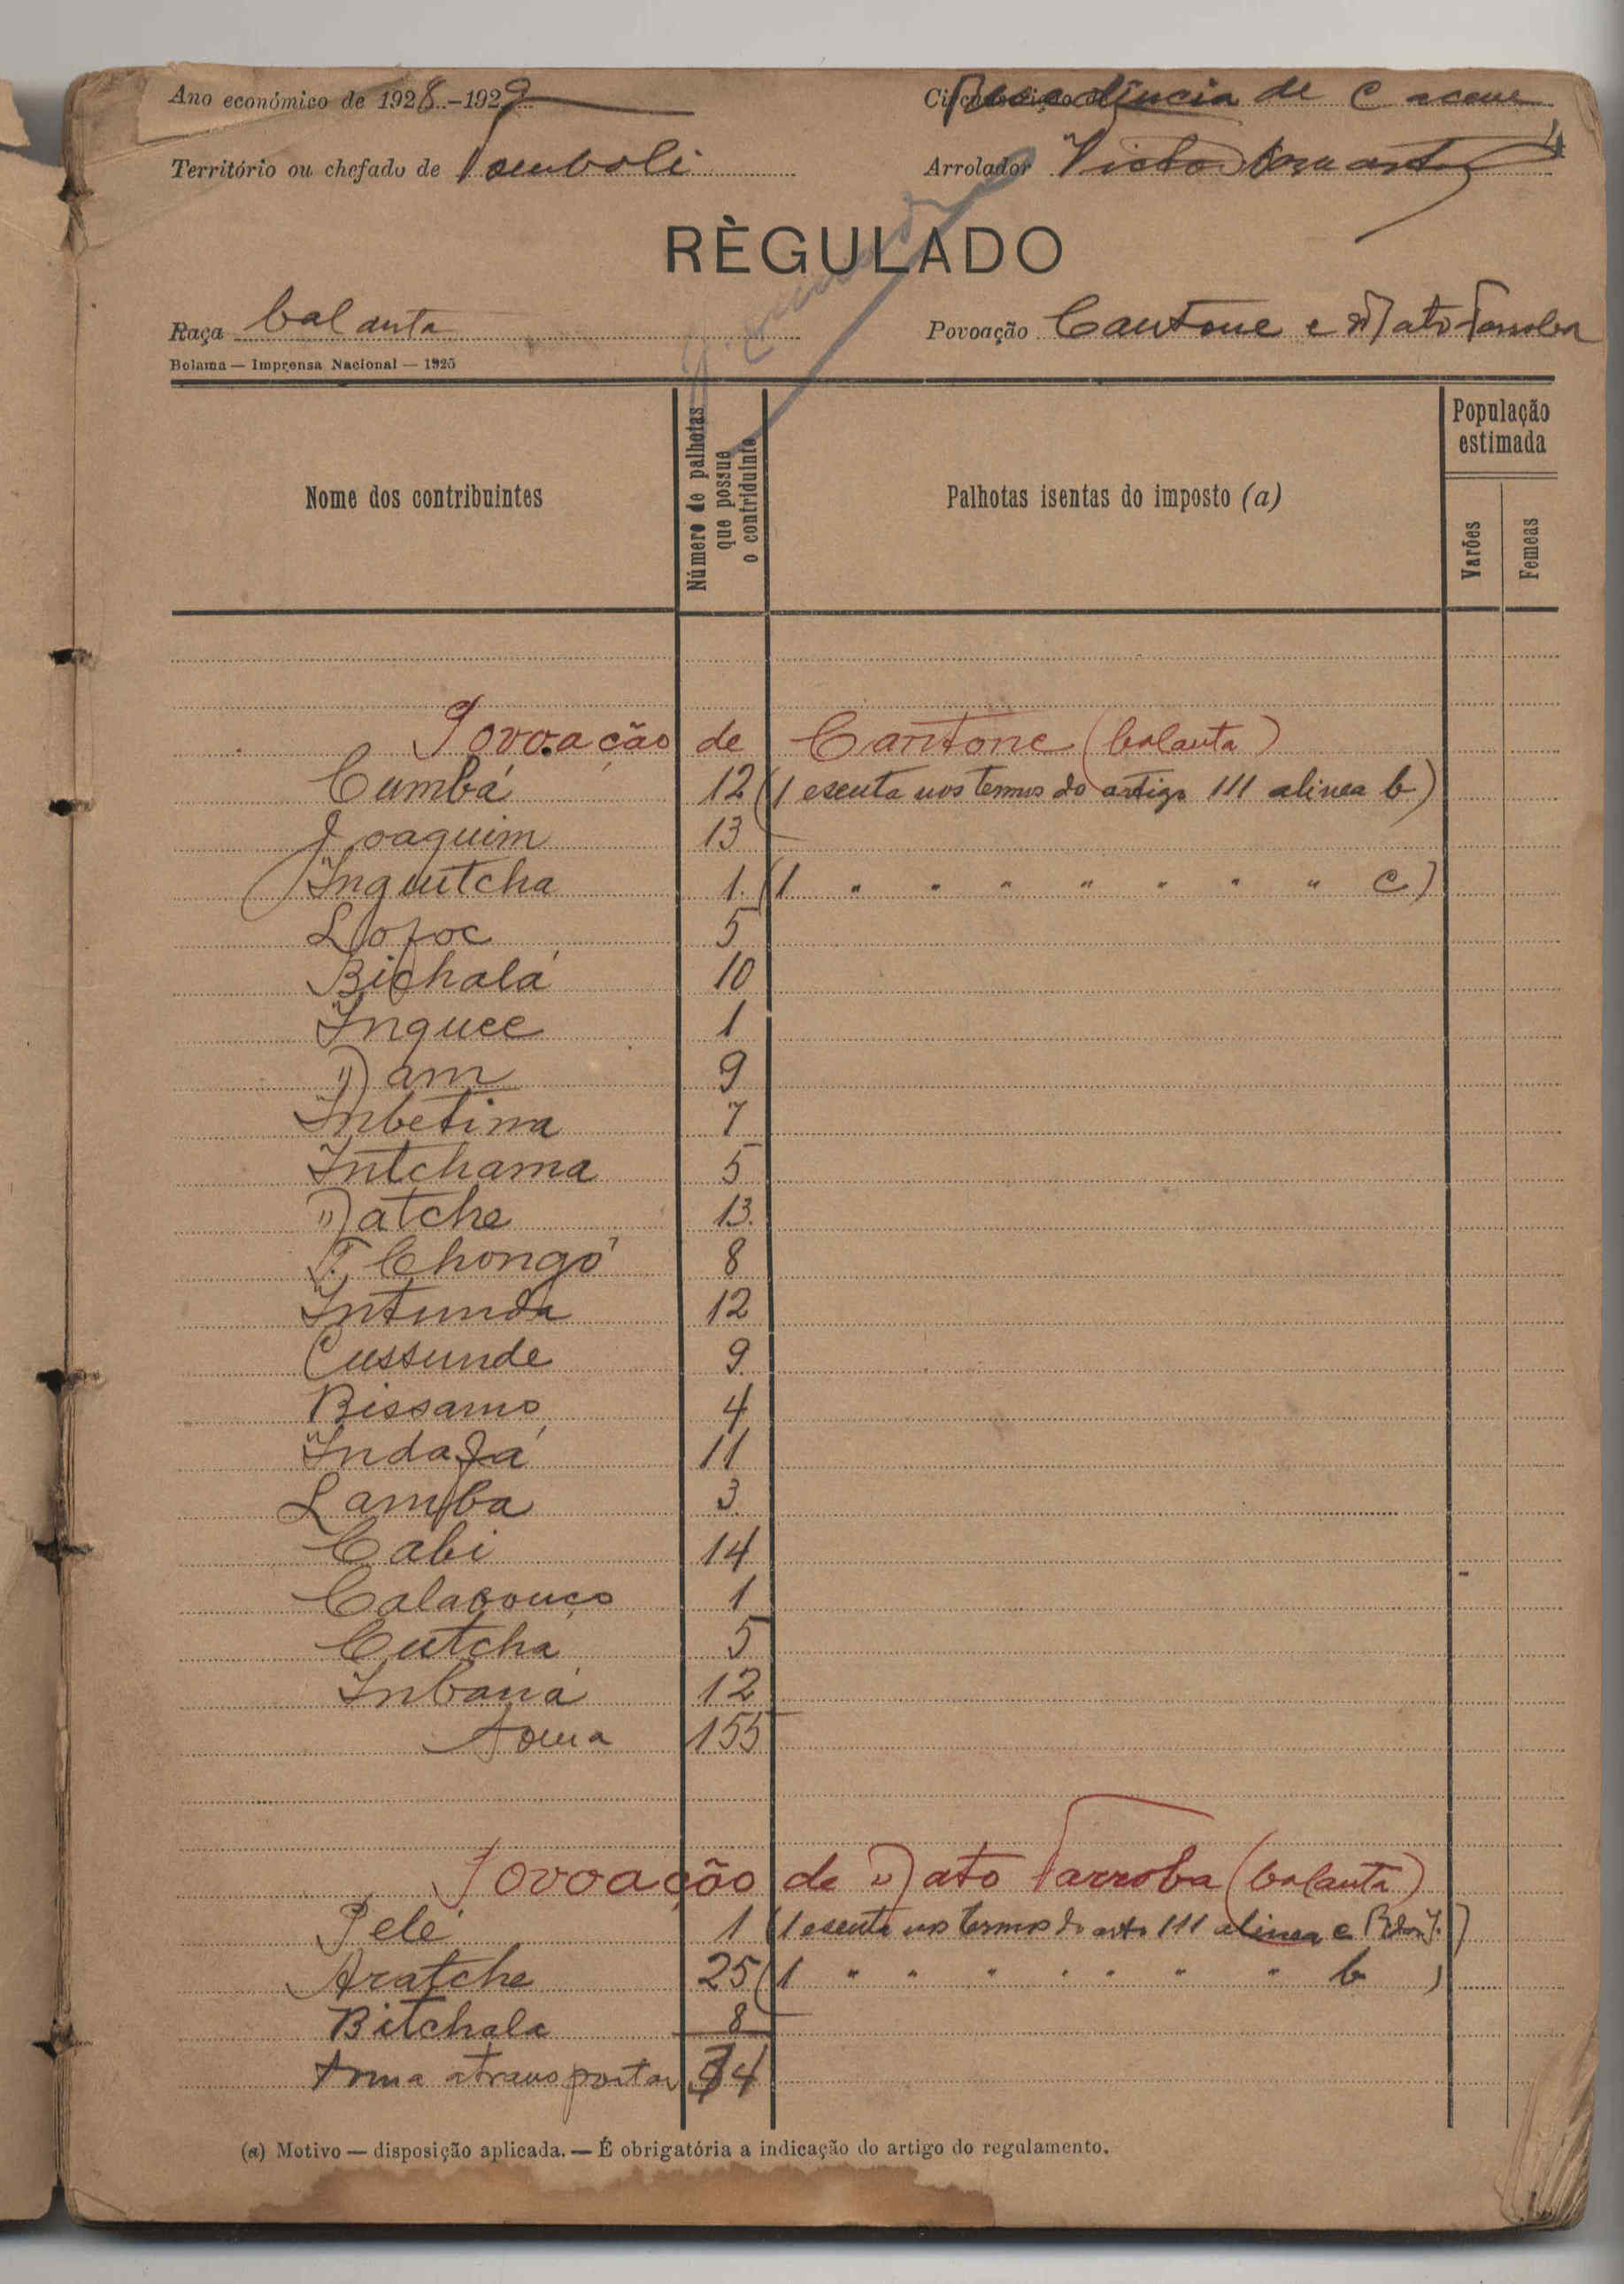 Ano económico de 1928-1929
Residência de Cacene
Território ou chefado de Tomboli
Arrolador Victor Duarte
4
RÈGULADO
Raça balanta
Povoação Cantone e Mato Farroba
Bolama — Imprensa Nacional — 1925
Nome dos contribuintes
Número de palhotas
que possue
o contriduinte
Palhotas isentas do imposto (a)
População
estimada
Varões
Femeas
Povoação de Cantone (balanta)
Cumbá 12 (1 esenta nos termos do artigo 111 alinea b)
Joaquim 13
Ingutcha 1 (1 " " " " " " " c)
Lofoc 5
Bichalá 10
Inquee 1
Dam 9
Inbetima 7
Intchama 5
Natche 13
T. Chongó 8
Intunda 12
Cussunde 9
Bissamo 4
Indafá 11
Lamba 3
Cabi 14
Calabouço 1
Cutchá 5
Inbaná 12
Soma 155
Povoação de Mato Farroba (balanta)
Pelé 1 (1 esenta nos termos do artº 111 alinea c)
Aratche 25 (1 " " " " " " " b)
Bitchala 8
Soma a transportar 34
(a) Motivo — disposição aplicada. — É obrigatória a indicação do artigo do regulamento.